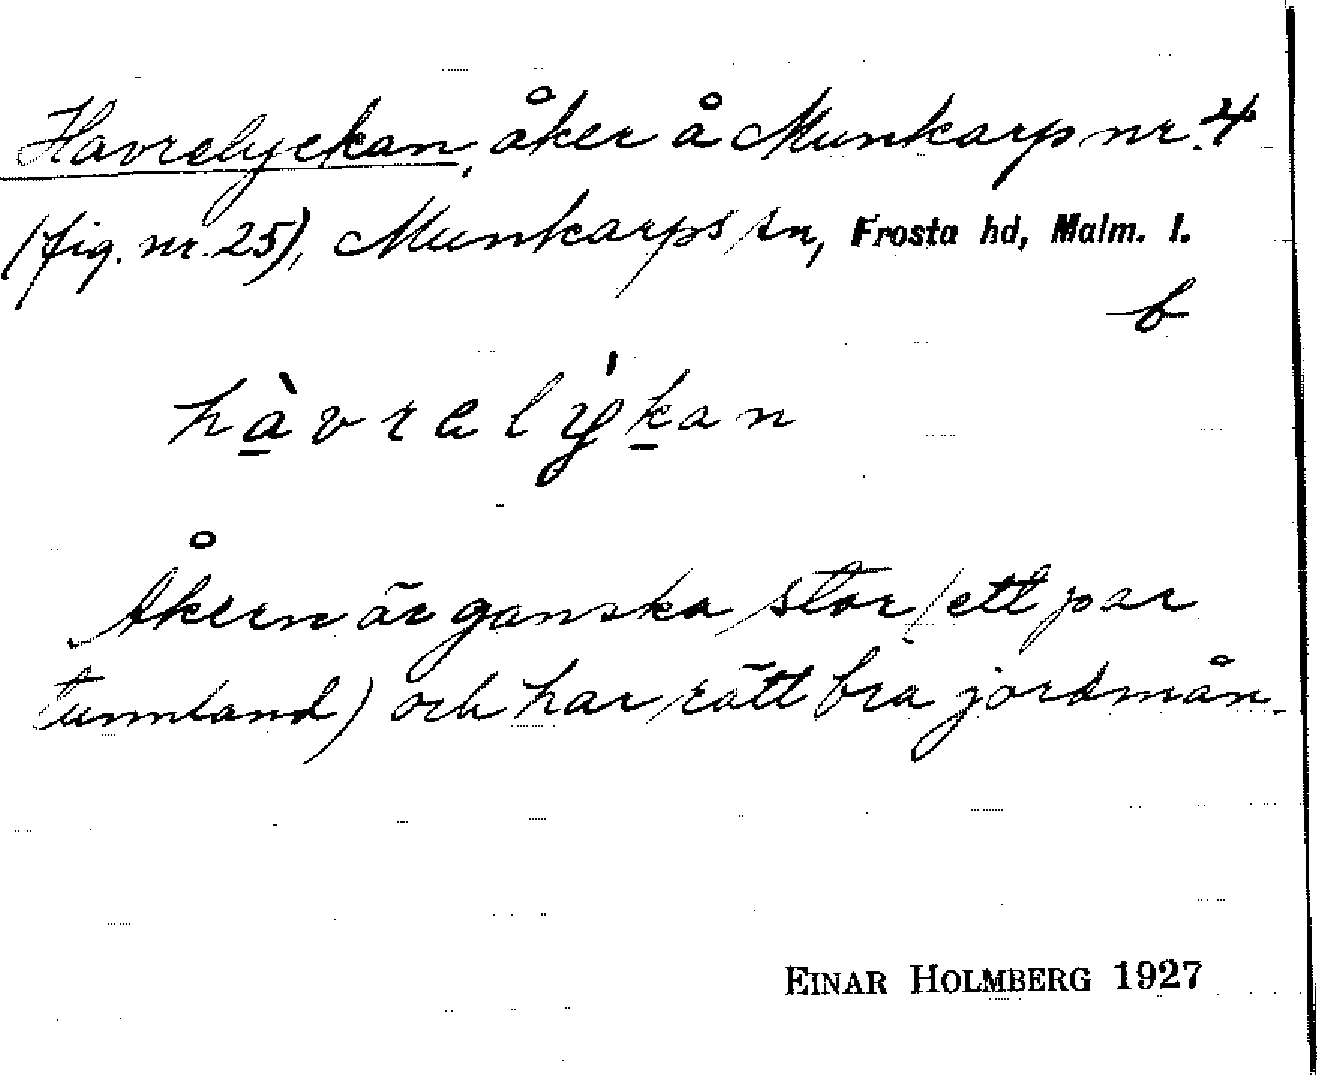 Havrelyckan, åker å Munkarp nr. 4
(fig. nr. 25), Munkarps sn, Frosta hd, Malm. l.
b
hàvrelẏkan
Åkern är ganska stor (ett par
tunnland) och har rätt bra jordmån.
EINAR HOLMBERG 1927